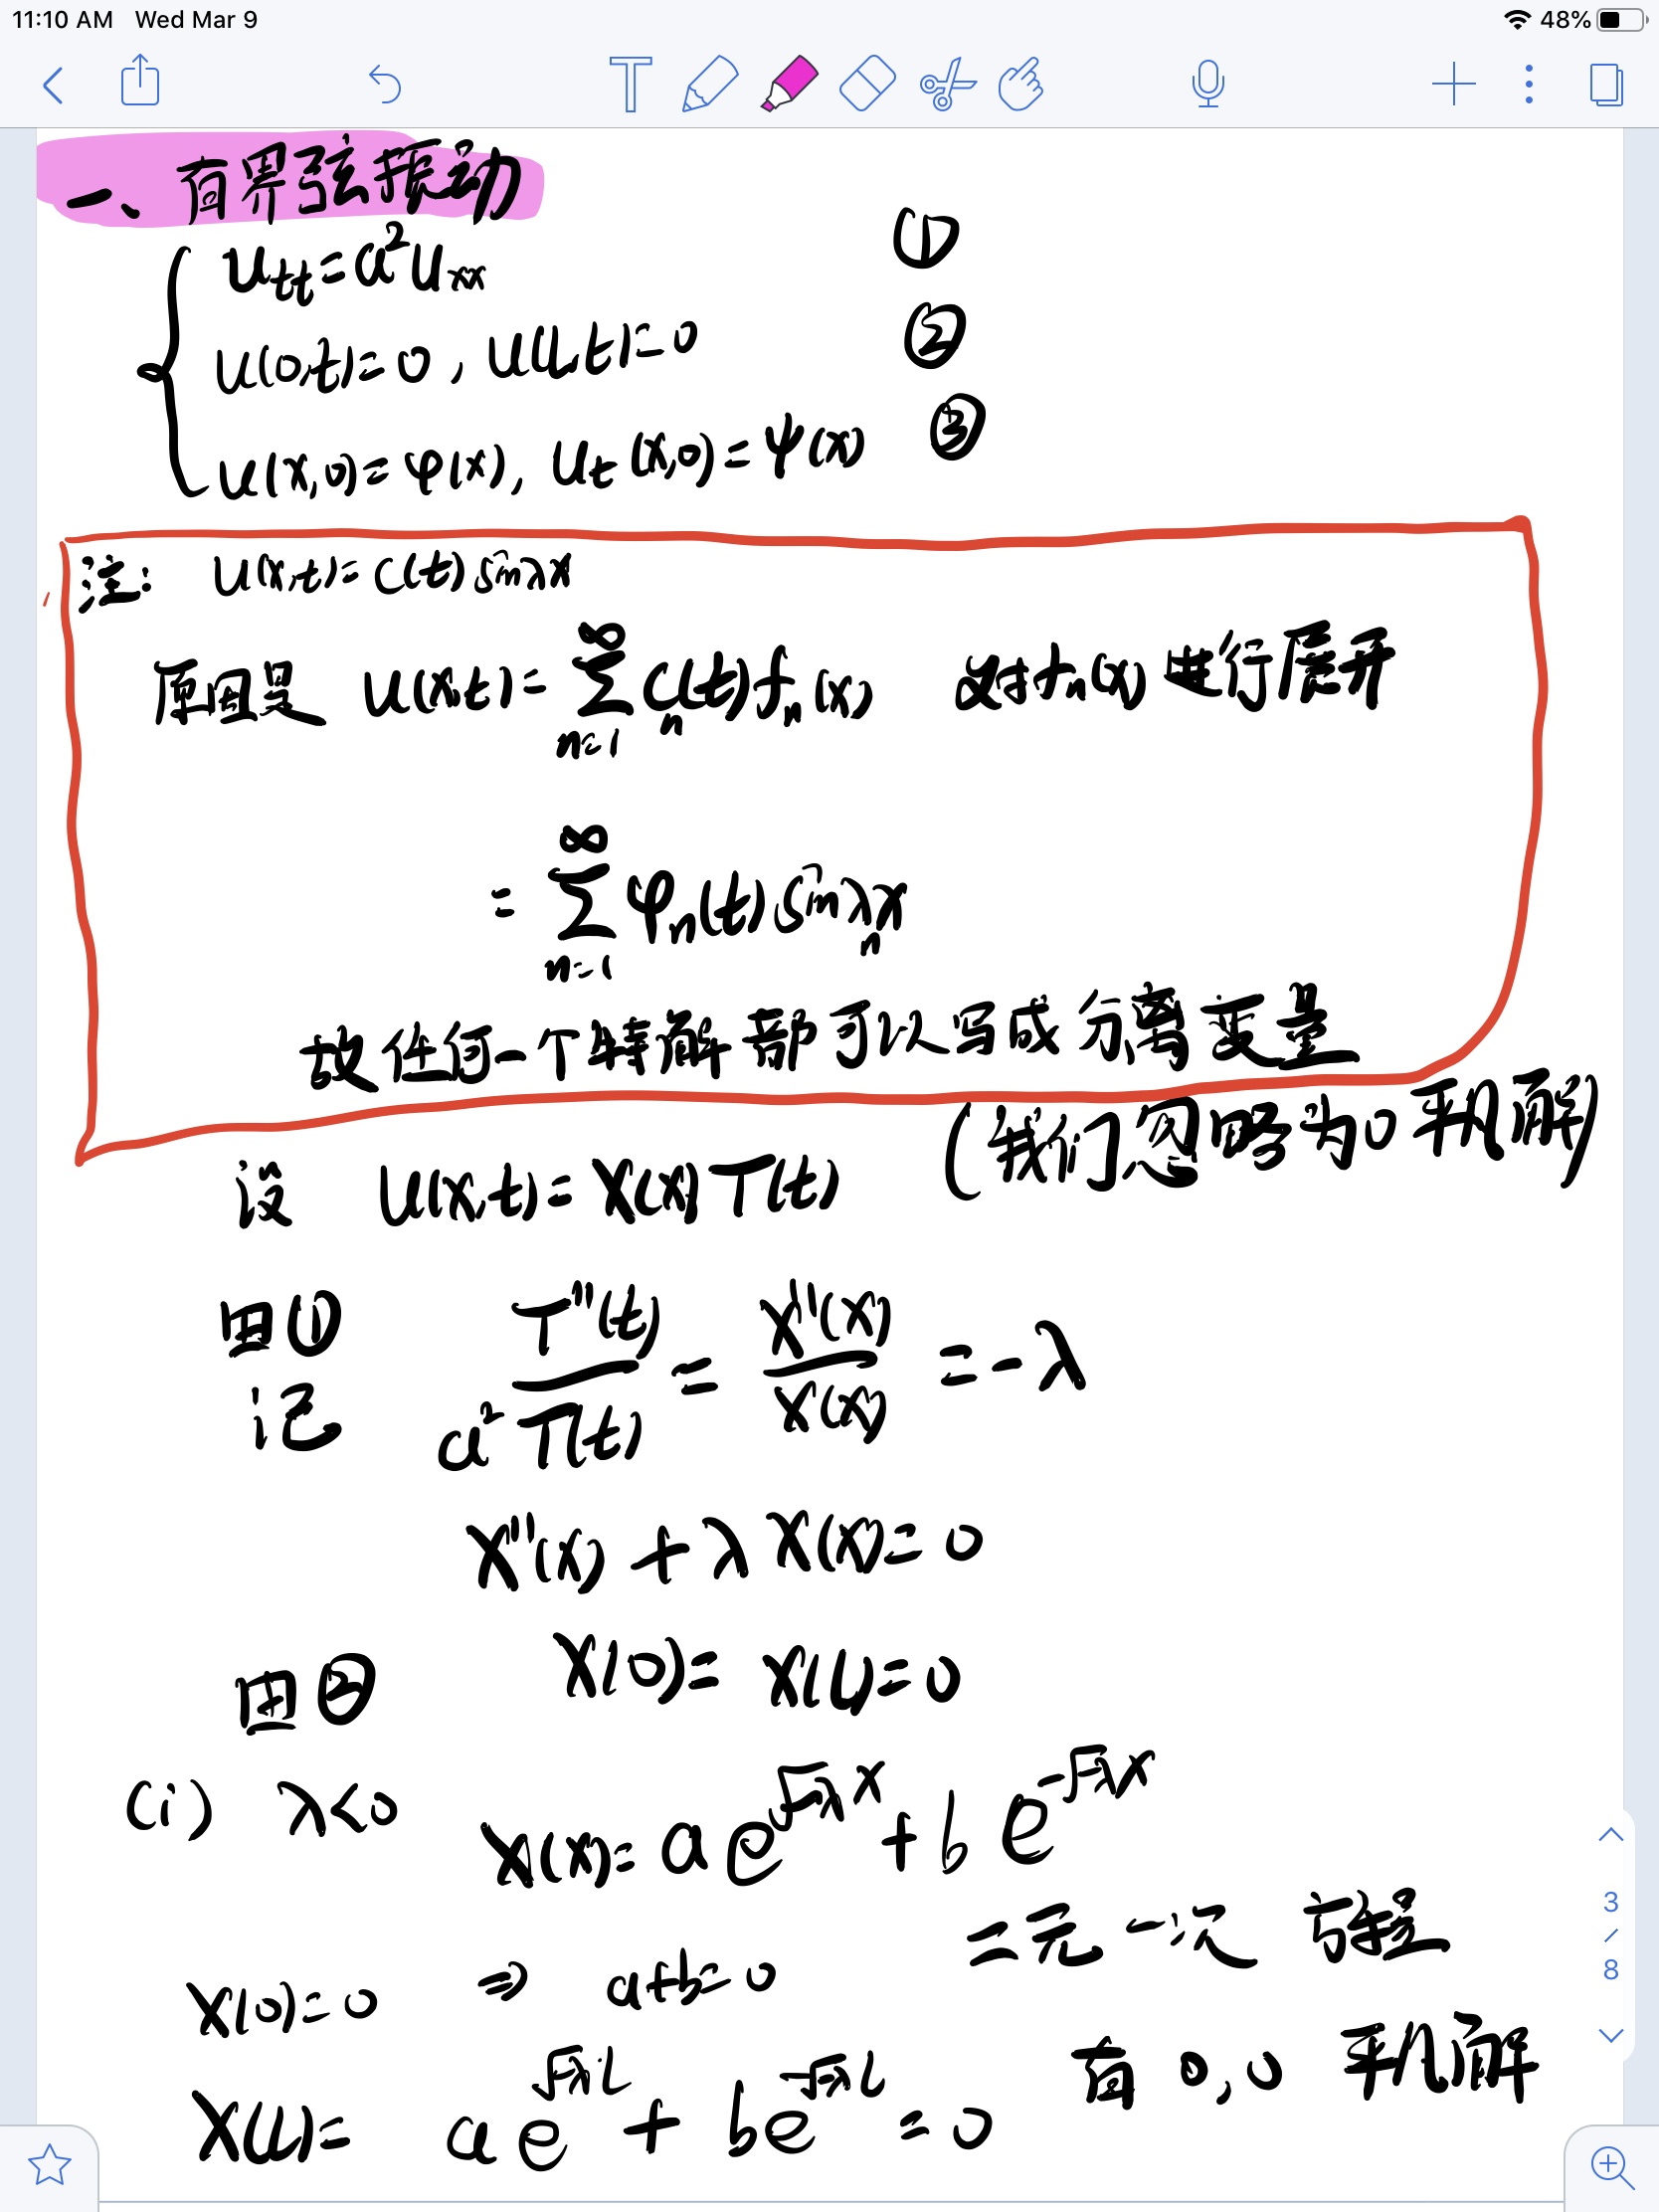 11:10 AM Wed Mar 9 48%
一、有界弦振动
utt=a²uxx ①
u(0,t)=0, u(l,t)=0 ②
u(x,0)=φ(x), ut(x,0)=ψ(x) ③
注: u(x,t)=C(t)sinλx
原因是 u(x,t)=∑n=1∞ Cn(t)fn(x) 对fn(x)进行展开
=∑n=1∞ φn(t)sinλnx
故任何一个特解都可以写成分离变量
(我们忽略为0平凡解)
设 u(x,t)=X(x)T(t)
由① T''(t)/a²T(t) = X''(x)/X(x) =-λ
记
X''(x)+λX(x)=0
由② X(0)=X(l)=0
(i) λ<0 X(x)=ae^√-λx+be^-√-λx
二元一次方程
X(0)=0 ⇒ a+b=0
有0,0平凡解
X(l)= ae^√-λl+be^-√-λl=0
3
/
8